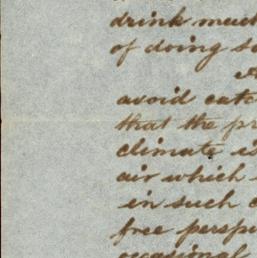 drink much
of doing so
avoid catc
that the pr
climate is
air which
in such c
free perspi
occasional